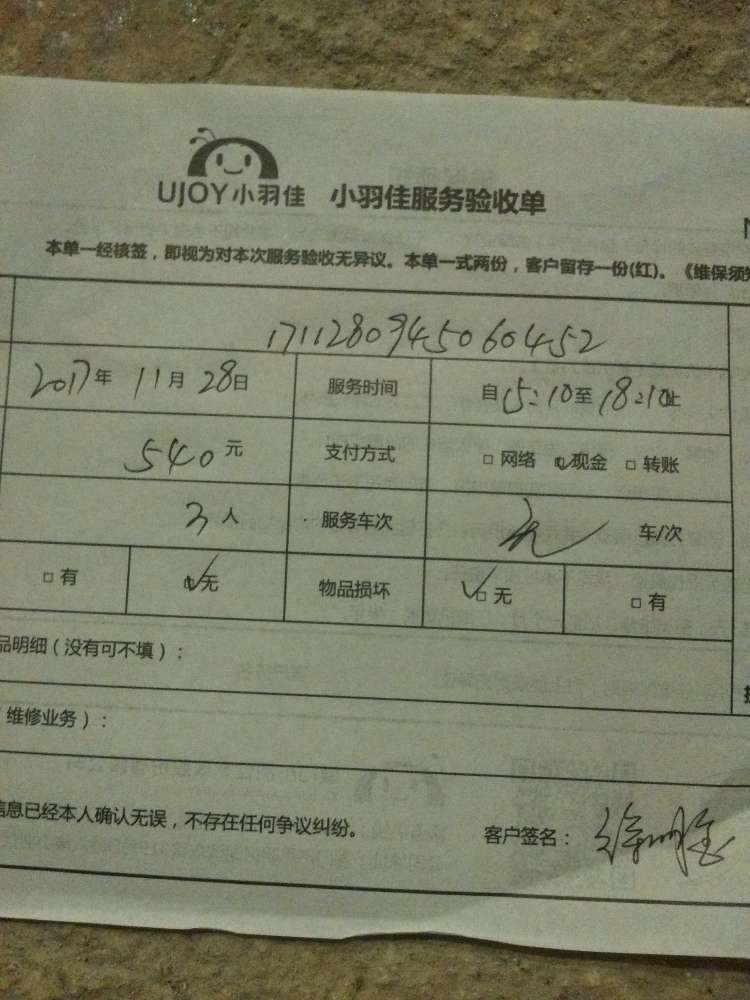 UJOY小羽佳 小羽佳服务验收单
N
本单一经核签，即视为对本次服务验收无异议。本单一式两份，客户留存一份(红)。《维保须知
1711280945060452
2017年 11月 28日 服务时间 自15:10至18:10止
540元 支付方式 □ 网络 ☑现金 □ 转账
3人 服务车次 车/次
□ 有 ☑无 物品损坏 ☑无 □ 有
品明细（没有可不填）：
维修业务）：
信息已经本人确认无误，不存在任何争议纠纷。 客户签名：